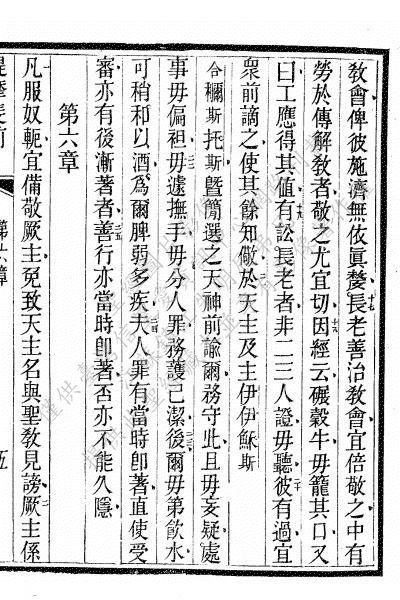 教會俾彼施濟無依眞嫠長老善治教會宜倍敬之中有
勞於傳解教者敬之尤宜切因經云碾穀牛毋籠其口又
曰工應得其値有訟長老者非二三人證毋聽彼有過宜
衆前謫之使其餘知儆於天主及主伊伊穌斯
合穪斯托斯曁簡選之天神前諭爾務守此且毋妄疑處
事毋偏袒毋遽撫手毋分人罪務護己潔後爾毋第飲水
可稍和以酒爲爾脾弱多疾夫人罪有當時卽著直使受
審亦有後漸著者善行亦當時卽著否亦不能久隱
第六章
凡服奴軛宜備敬厥主免致天主名與聖教見謗厥主係
第六章
五